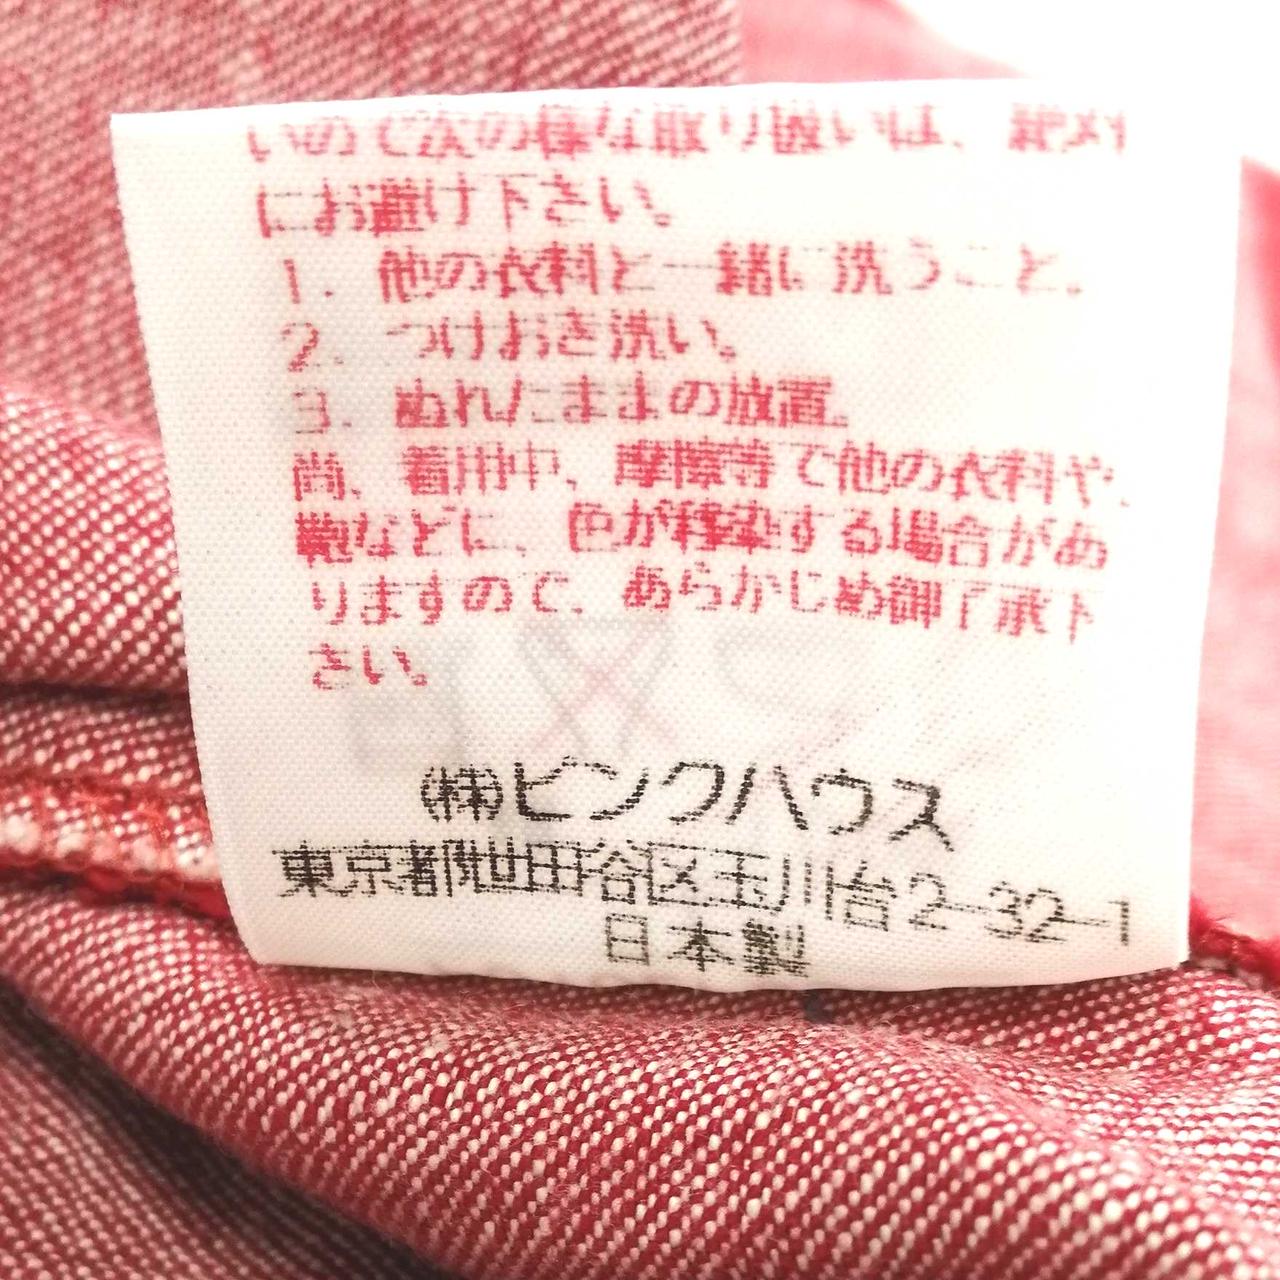 いので次の様な取り扱いは、絶対
にお避け下さい。
1. 他の衣料と一緒に洗うこと。
2. つけおき洗い。
3. ぬれたままの放置。
尚、着用中、摩擦等で他の衣料や、
鞄などに、色が移染する場合があ
りますので、あらかじめ御了承下
さい。
(株)ピンクハウス
東京都世田谷区玉川台2-32-1
日本製